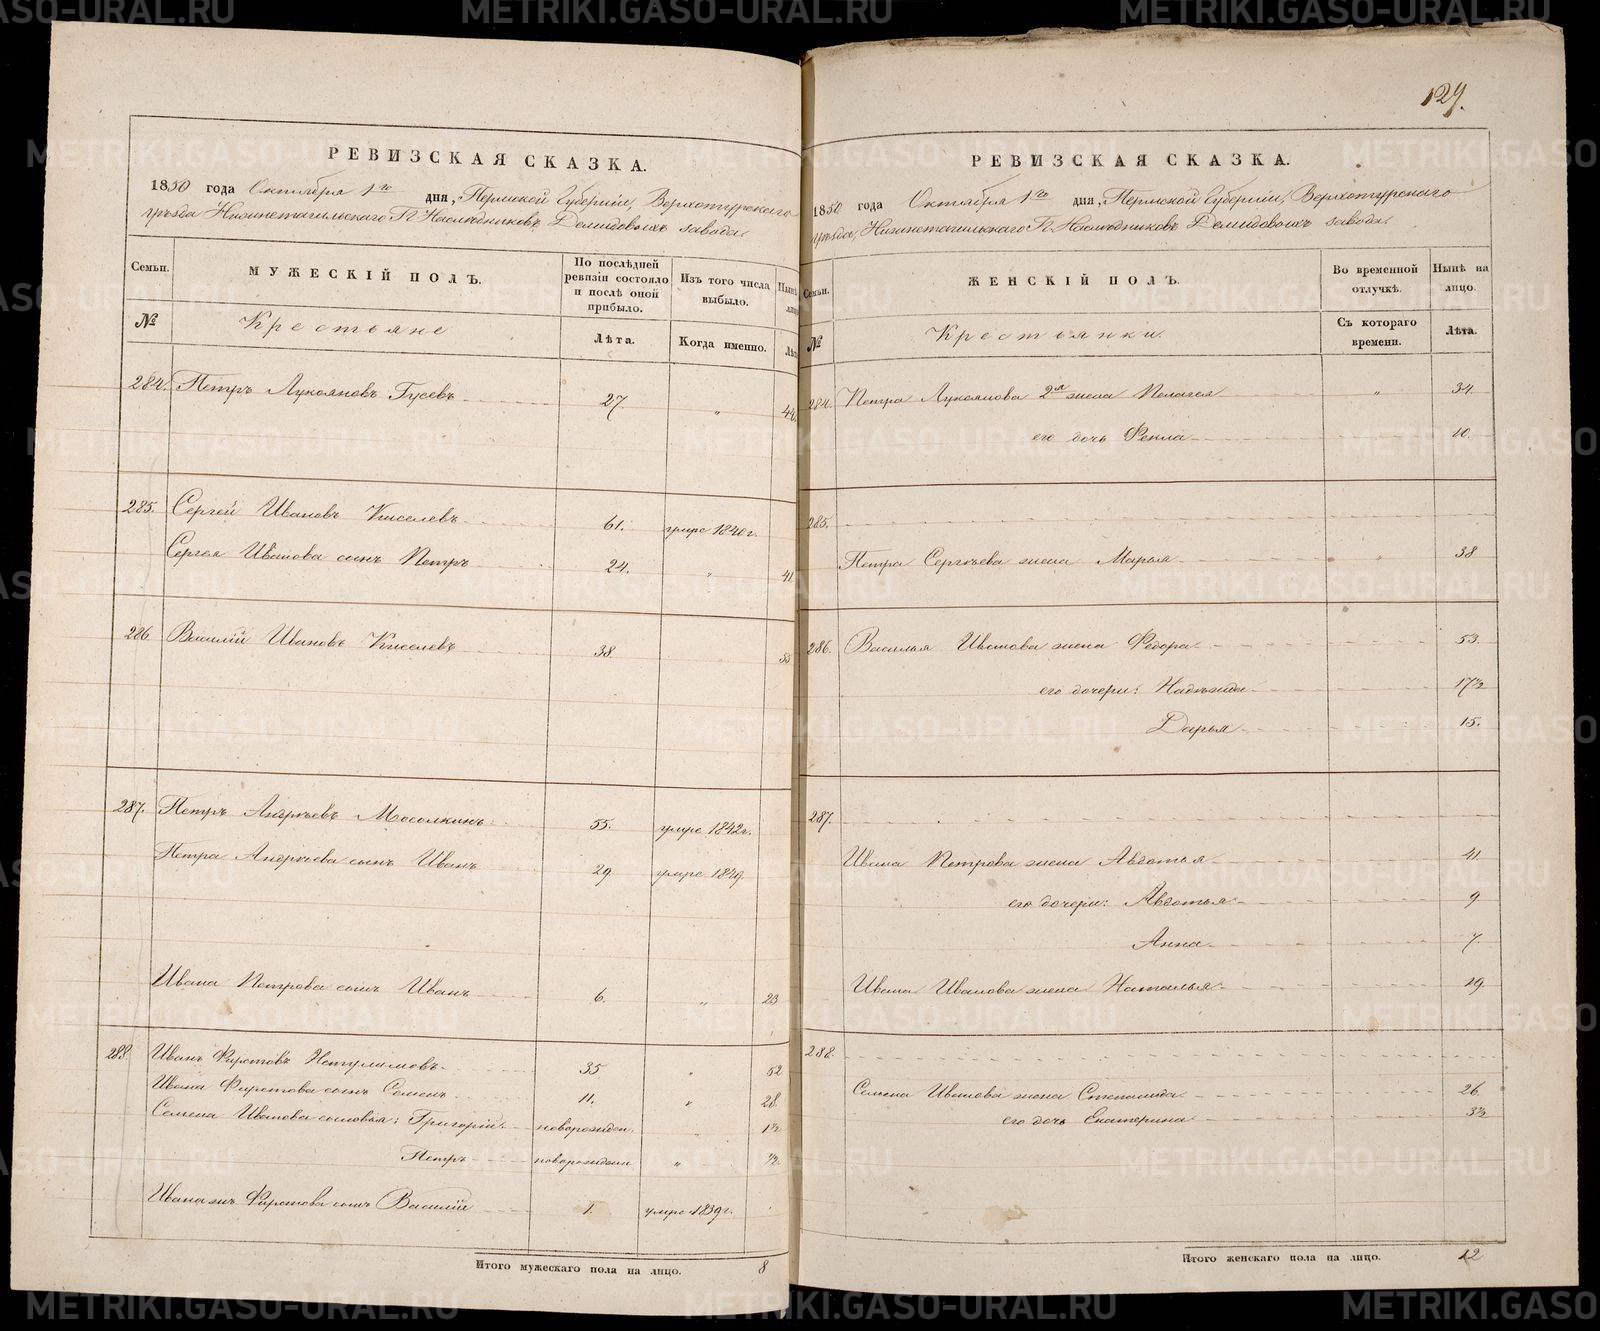 129.
РЕВИЗСКАЯ СКАЗКА.
1850 года Октября 1го дня, Пермской Губернiи, Верхотурскаго
уѣзда Нижнетагильскаго Гг. Наслѣдниковъ Демидовыхъ завода.
Семьи. МУЖЕСКIЙ ПОЛЪ. По послѣдней ревизiи состояло и послѣ оной прибыло. Изъ того числа выбыло. Нынѣ
№ Крестьяне Лѣта. Когда именно. Лѣта
284. Петръ Лукояновъ Гусевъ 27 " 44.
285. Сергѣй Ивановъ Киселевъ 61. умре 1840 г.
Сергѣя Иванова сынъ Петръ 24. " 41.
286 Василiй Ивановъ Киселевъ 38.
287. Петръ Андреевъ Мосолкинъ 55. умре 1842 г.
Петра Андреева сынъ Иванъ 29 умре 1849.
Ивана Петрова сынъ Иванъ 6. " 23
288 Иванъ Фирстовъ 35 " 52
Ивана Фирстова сынъ Семенъ 11. " 28
Семена Иванова сыновья: Григорiй новорожден. 1½
Петръ новорожден " ½
Ивана же Фирстова сынъ Василiй 1. умре 1839 г.
Итого мужескаго пола на лицо. 8
РЕВИЗСКАЯ СКАЗКА.
1850 года Октября 1го дня, Пермской Губернiи, Верхотурскаго
уѣзда, Нижнетагильскаго Гг. Наслѣдниковъ Демидовыхъ завода.
Семьи. ЖЕНСКIЙ ПОЛЪ. Во временной отлучкѣ. Нынѣ на лицо.
№ Крестьянки Съ котораго времени. Лѣта.
284. Петра Лукоянова 2я жена Пелагея " 34.
его дочь Фекла 10.
285.
Петра Сергѣева жена Марья " 38
286. Василья Иванова жена Федора 53.
его дочери: Надежда 17½
Дарья 15.
287.
Ивана Петрова жена Авдотья 41.
его дочери: Авдотья 9
Анна 7.
Ивана Иванова жена Наталья 19.
288.
Семена Иванова жена Степанида 26.
его дочь Екатерина 3½
Итого женскаго пола на лицо. 12
METRIKI.GASO-URAL.RU